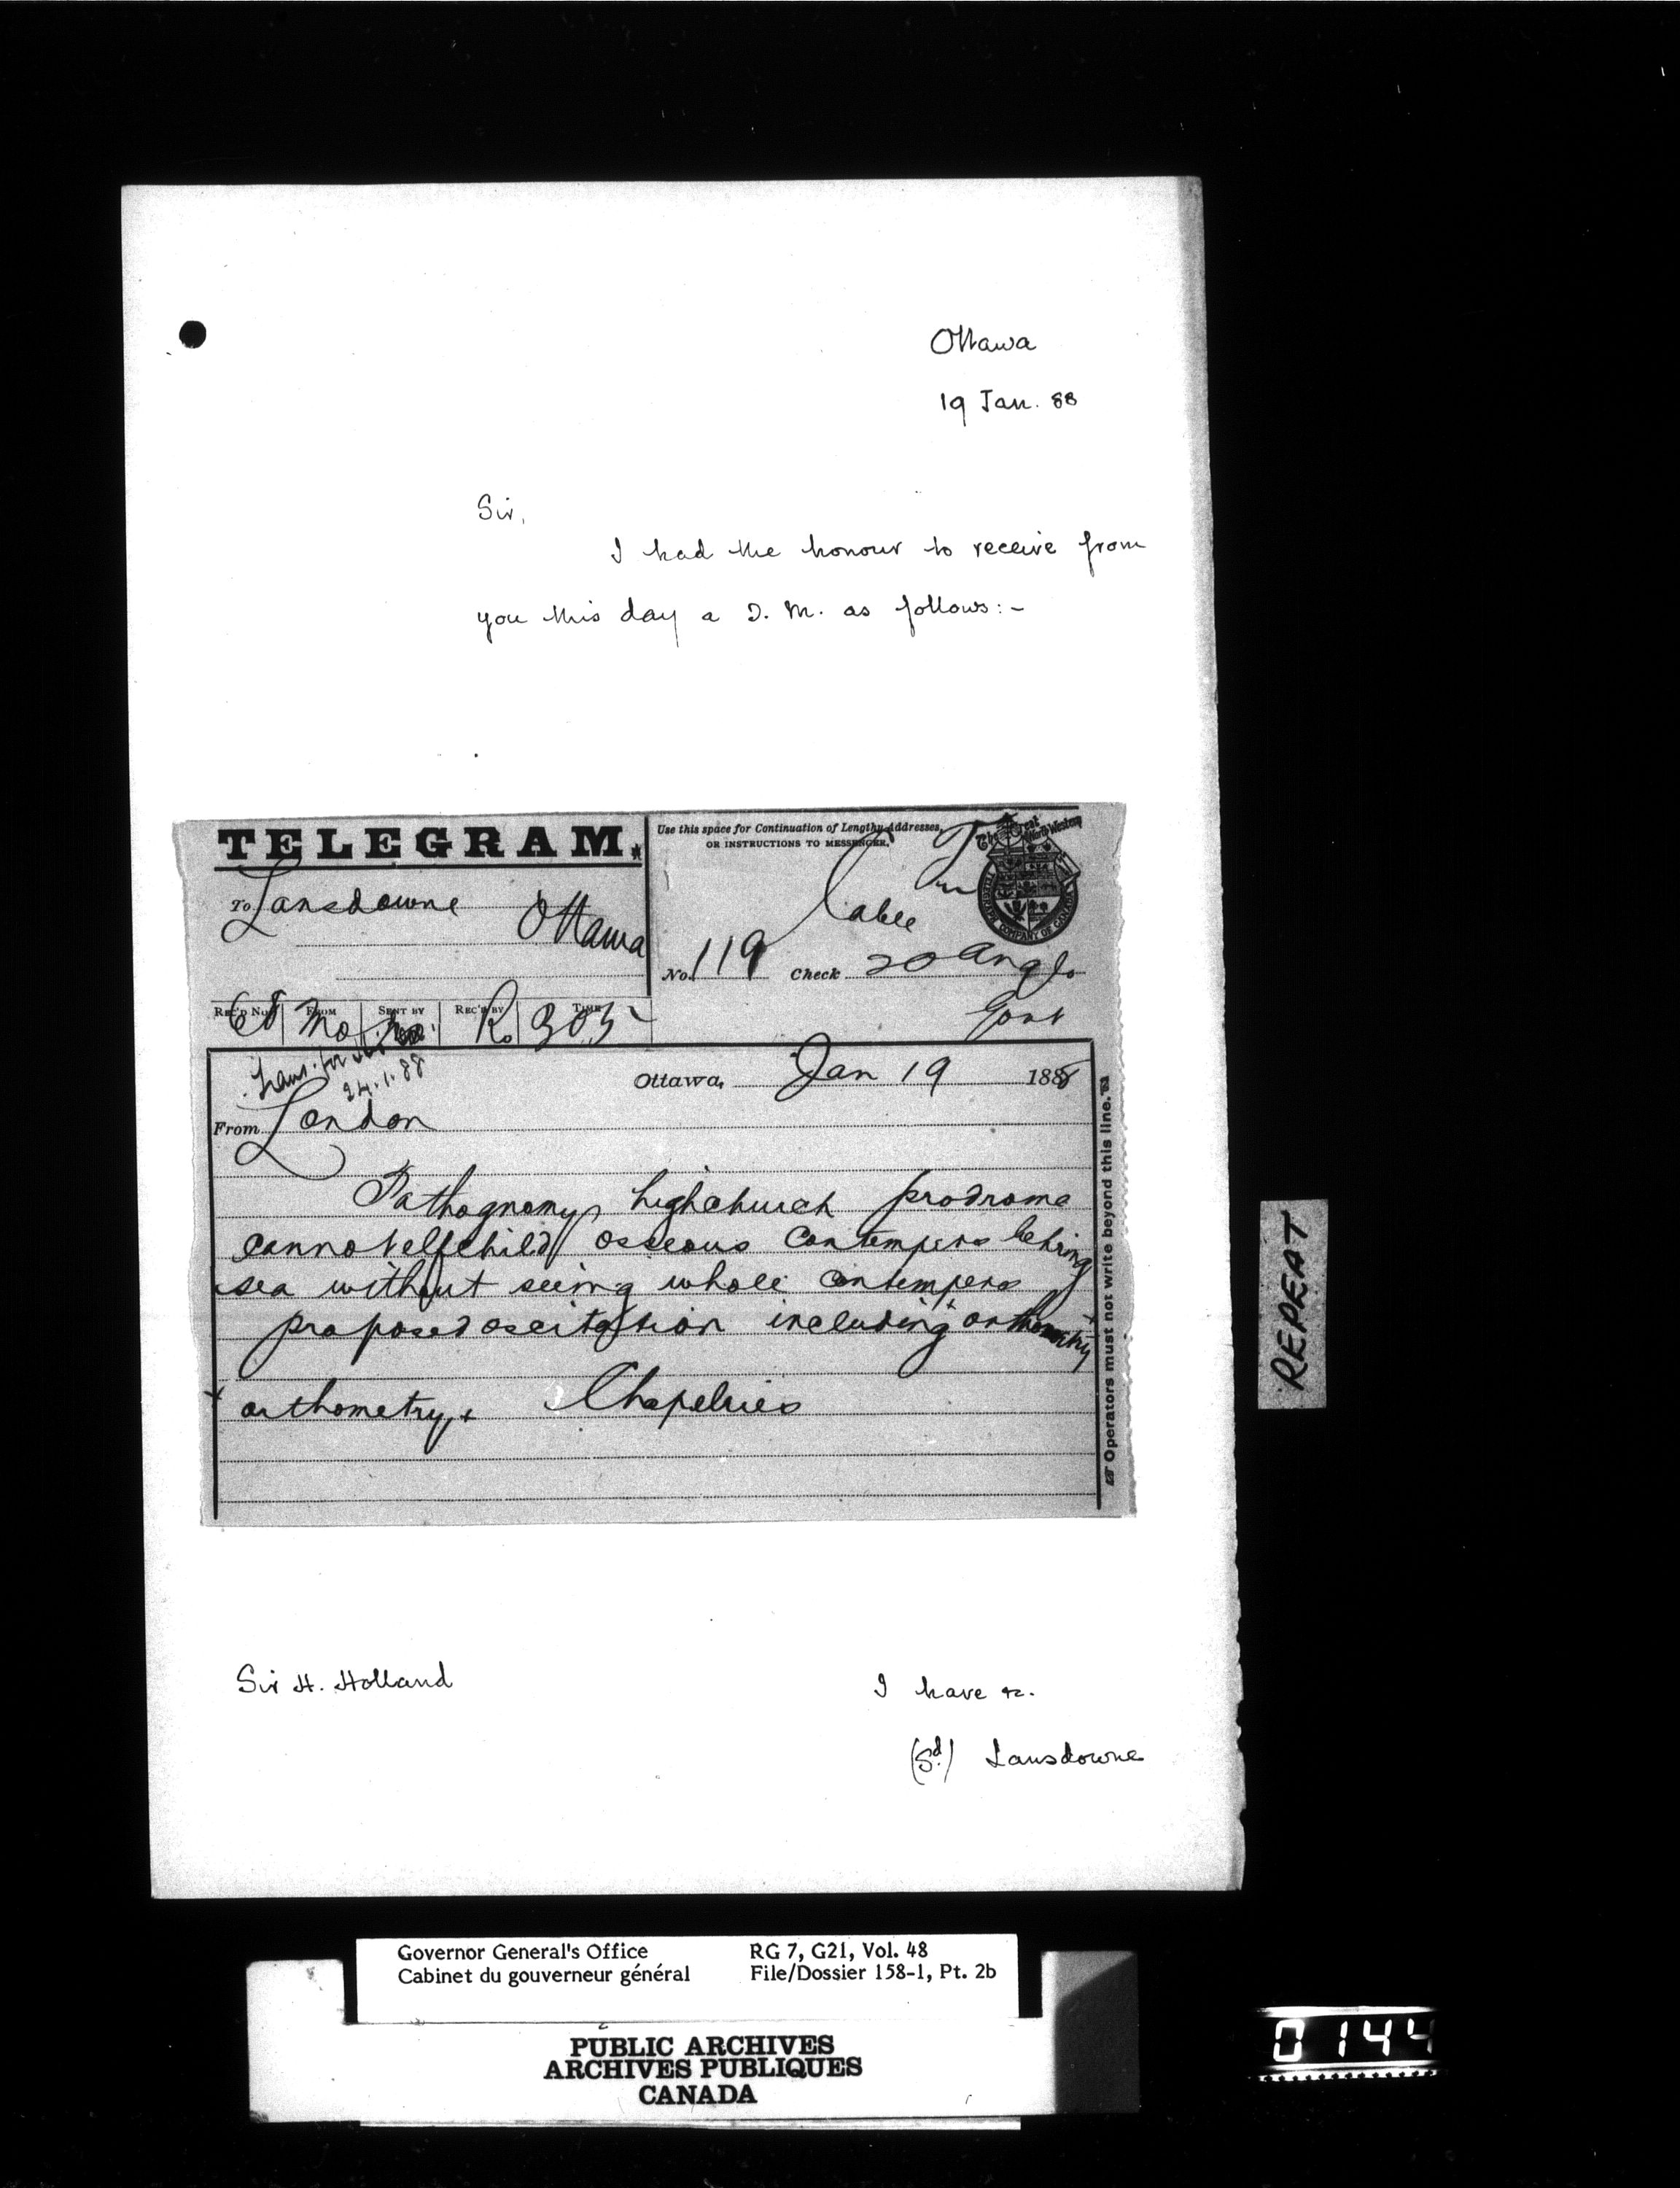 Ottawa
19 Jan. 88
Sir,
I had the honour to receive from
you this day a D. M. as follows:-
TELEGRAM.
Use this space for Continuation of Lengthy Addresses,
OR INSTRUCTIONS TO MESSENGER.
The Great North Western
TELEGRAPH COMPANY OF CANADA
To Lansdowne Ottawa
Cable
No. 119 Check 20 Anglo
Govt
REC'D No. FROM SENT BY REC'D BY TIME
68 Mo Ro 305
24.1.88
Ottawa, Jan 19 1888
From London
Pathognomy highchurch prodrome
cannot elfchild osseous contempers behring
sea without seeing whole contempers
proposed oscitation including + orthometry +
+ orthometry + Chapelries
Operators must not write beyond this line.
Sir H. Holland
I have &c.
(Sd.) Lansdowne
REPEAT
Governor General's Office RG 7, G21, Vol. 48
Cabinet du gouverneur général File/Dossier 158-1, Pt. 2b
PUBLIC ARCHIVES
ARCHIVES PUBLIQUES
CANADA
0144